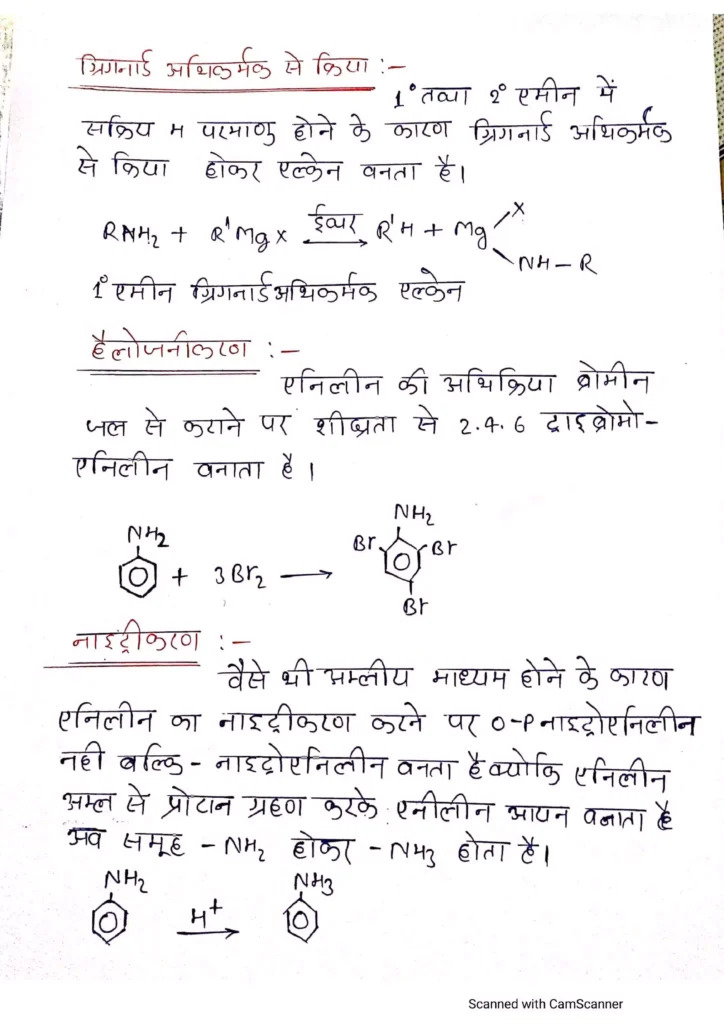 ग्रिगनार्ड अभिकर्मक से क्रिया :-
1° तथा 2° एमीन में
सक्रिय H परमाणु होने के कारण ग्रिगनार्ड अभिकर्मक
से क्रिया होकर एल्केन बनता है।
RNH₂ + R'Mgx ईथर → R'H + Mg x
NH – R
1° एमीन ग्रिगनार्ड अभिकर्मक एल्केन
हैलोजनीकरण :-
एनिलीन की अभिक्रिया ब्रोमीन
जल से कराने पर शीघ्रता से 2.4.6 ट्राइब्रोमो-
एनिलीन बनाता है।
NH₂ NH₂
Br Br
+ 3Br₂ →
Br
नाइट्रीकरण :-
वैसे भी अम्लीय माध्यम होने के कारण
एनिलीन का नाइट्रीकरण करने पर O-P नाइट्रोएनिलीन
नही बल्कि - नाइट्रोएनिलीन बनता है क्योकि एनिलीन
अम्ल से प्रोटान ग्रहण करके एनीलीन आयन बनाता है
अब समूह - NH₂ होकर - NH₃ होता है।
NH₂ NH₃
H⁺ →
Scanned with CamScanner